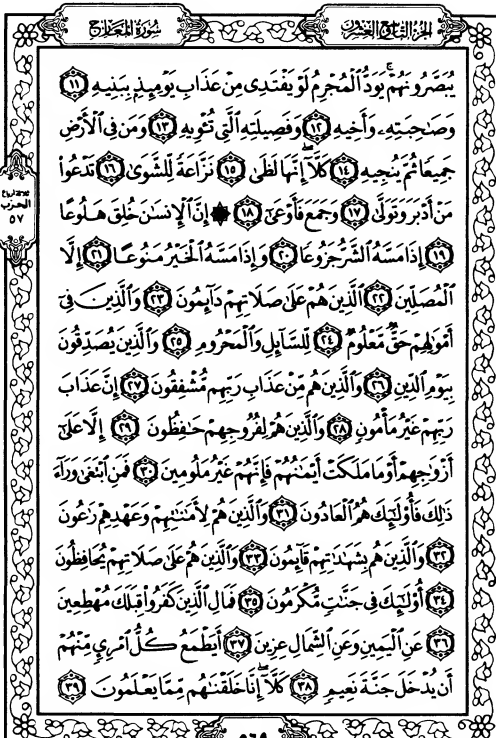 الجزء التاسع والعشرون
سورة المعارج
يُبَصَّرُونَهُمْ يَوَدُّ ٱلْمُجْرِمُ لَوْ يَفْتَدِى مِنْ عَذَابِ يَوْمِئِذٍۭ بِبَنِيهِ ١١
وَصَٰحِبَتِهِۦ وَأَخِيهِ ١٢ وَفَصِيلَتِهِ ٱلَّتِى تُـْٔوِيهِ ١٣ وَمَن فِى ٱلْأَرْضِ
جَمِيعًا ثُمَّ يُنجِيهِ ١٤ كَلَّآ إِنَّهَا لَظَىٰ ١٥ نَزَّاعَةً لِّلشَّوَىٰ ١٦ تَدْعُوا۟
مَنْ أَدْبَرَ وَتَوَلَّىٰ ١٧ وَجَمَعَ فَأَوْعَىٰٓ ١٨ ۞ إِنَّ ٱلْإِنسَٰنَ خُلِقَ هَلُوعًا
١٩ إِذَا مَسَّهُ ٱلشَّرُّ جَزُوعًا ٢٠ وَإِذَا مَسَّهُ ٱلْخَيْرُ مَنُوعًا ٢١ إِلَّا
ٱلْمُصَلِّينَ ٢٢ ٱلَّذِينَ هُمْ عَلَىٰ صَلَاتِهِمْ دَآئِمُونَ ٢٣ وَٱلَّذِينَ فِىٓ
أَمْوَٰلِهِمْ حَقٌّ مَّعْلُومٌ ٢٤ لِّلسَّآئِلِ وَٱلْمَحْرُومِ ٢٥ وَٱلَّذِينَ يُصَدِّقُونَ
بِيَوْمِ ٱلدِّينِ ٢٦ وَٱلَّذِينَ هُم مِّنْ عَذَابِ رَبِّهِم مُّشْفِقُونَ ٢٧ إِنَّ عَذَابَ
رَبِّهِمْ غَيْرُ مَأْمُونٍ ٢٨ وَٱلَّذِينَ هُمْ لِفُرُوجِهِمْ حَٰفِظُونَ ٢٩ إِلَّا عَلَىٰٓ
أَزْوَٰجِهِمْ أَوْ مَا مَلَكَتْ أَيْمَٰنُهُمْ فَإِنَّهُمْ غَيْرُ مَلُومِينَ ٣٠ فَمَنِ ٱبْتَغَىٰ وَرَآءَ
ذَٰلِكَ فَأُو۟لَٰٓئِكَ هُمُ ٱلْعَادُونَ ٣١ وَٱلَّذِينَ هُمْ لِأَمَٰنَٰتِهِمْ وَعَهْدِهِمْ رَٰعُونَ
٣٢ وَٱلَّذِينَ هُم بِشَهَٰدَٰتِهِمْ قَآئِمُونَ ٣٣ وَٱلَّذِينَ هُمْ عَلَىٰ صَلَاتِهِمْ يُحَافِظُونَ
٣٤ أُو۟لَٰٓئِكَ فِى جَنَّٰتٍ مُّكْرَمُونَ ٣٥ فَمَالِ ٱلَّذِينَ كَفَرُوا۟ قِبَلَكَ مُهْطِعِينَ
٣٦ عَنِ ٱلْيَمِينِ وَعَنِ ٱلشِّمَالِ عِزِينَ ٣٧ أَيَطْمَعُ كُلُّ ٱمْرِئٍ مِّنْهُمْ
أَن يُدْخَلَ جَنَّةَ نَعِيمٍ ٣٨ كَلَّآ إِنَّا خَلَقْنَٰهُم مِّمَّا يَعْلَمُونَ ٣٩
ثلاثة أرباع
الحزب
٥٧
٥٦٩